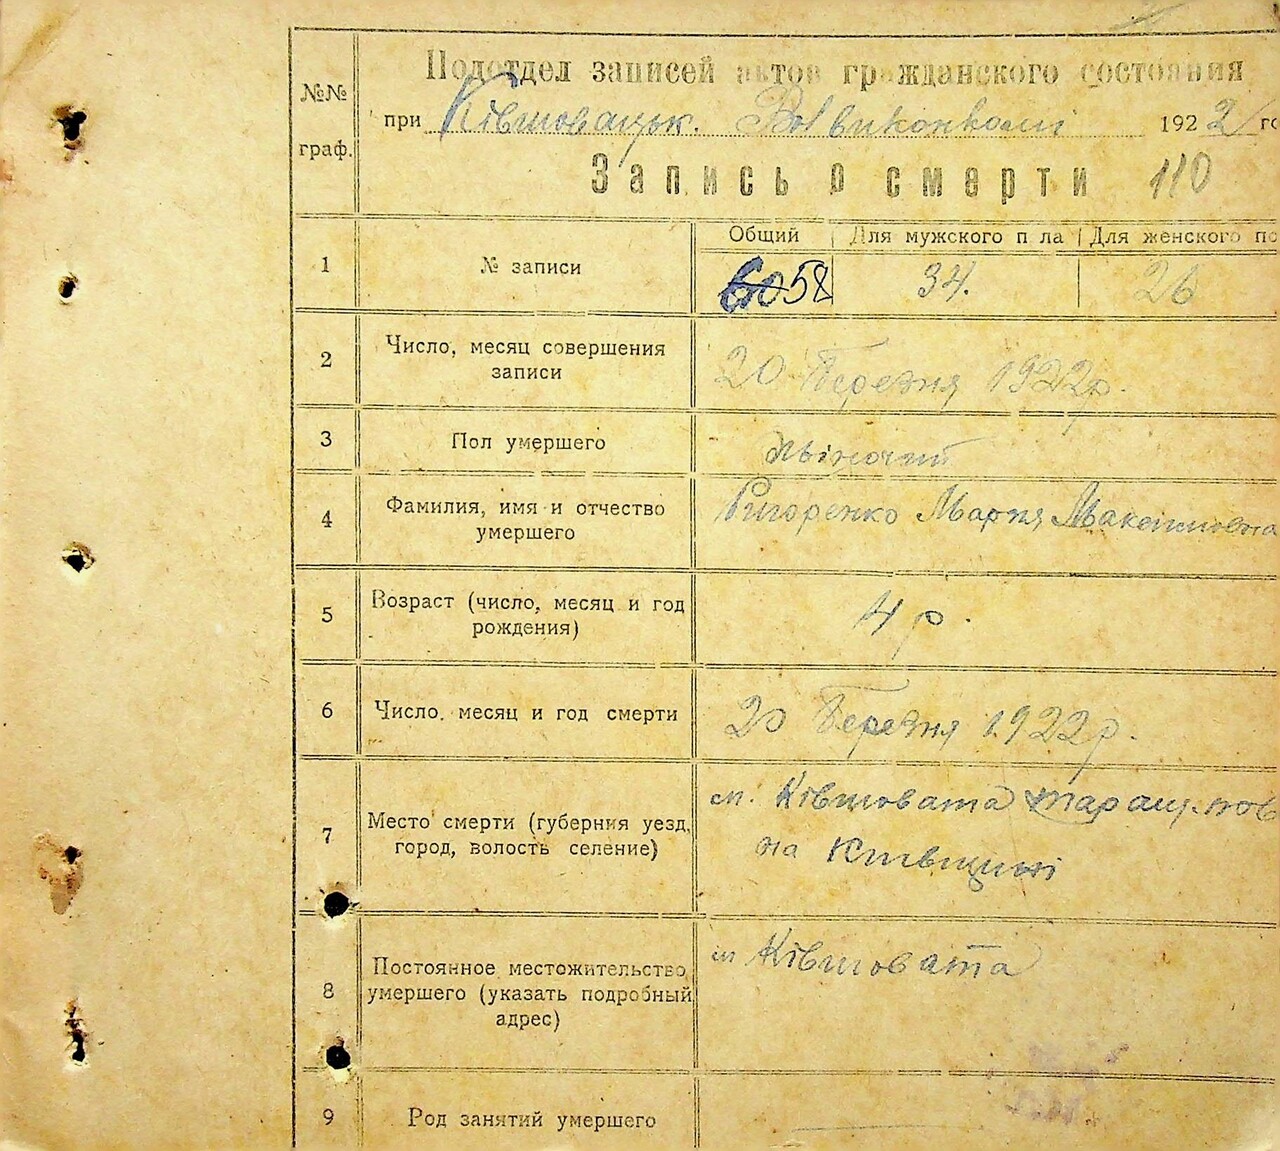 №№ граф.
Подотдел записей актов гражданского состояния
при Ківшовацьк. Волвиконкомі 1922 го
Запись о смерти 110
Общий Для мужского п ла Для женского по
1 № записи 60 58 34. 26
2 Число, месяц совершения
записи
20 Березня 1922р.
3 Пол умершего жіночий
4 Фамилия, имя и отчество
умершего
Григоренко Мария Максимовна
5 Возраст (число, месяц и год
рождения)
4 р.
6 Число, месяц и год смерти 20 Березня 1922р.
7 Место смерти (губерния уезд,
город, волость селение)
м. Ківшовата Таращ. пов
на Київщині
8 Постоянное местожительство
умершего (указать подробный
адрес)
м Ківшовата
9 Род занятий умершего